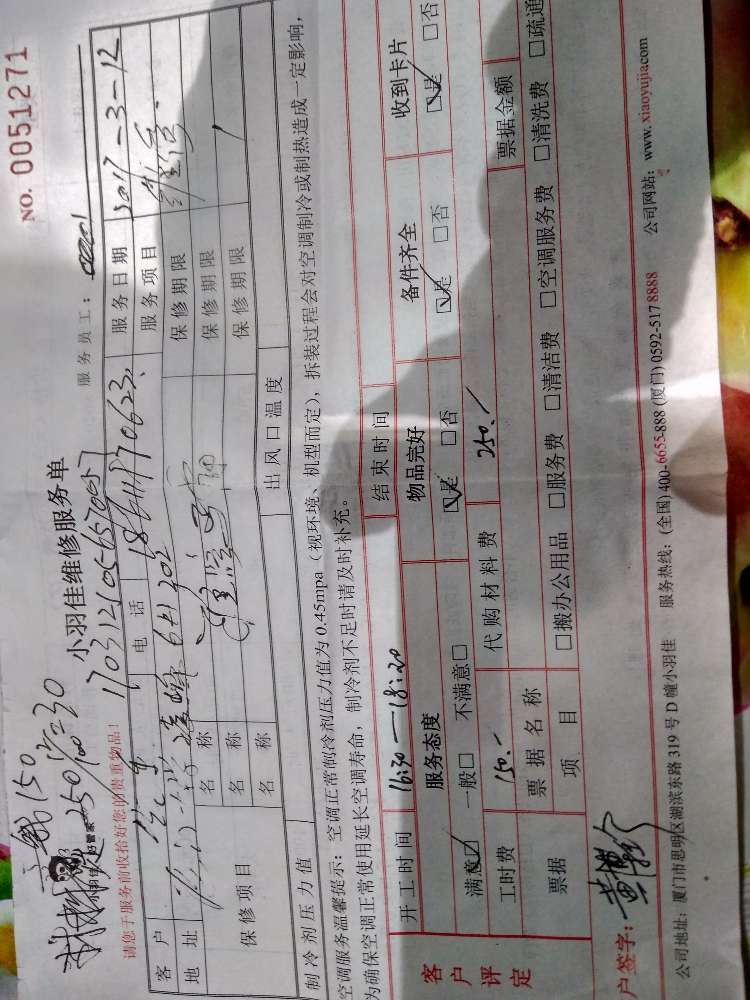 NO. 0051271
150
250 30
小羽佳维修服务单
服务员工：
小羽佳 好管家
请您于服务前收拾好您的贵重物品！
客户
电话 18611170623
服务日期 2017-3-12
地址 641 202
服务项目
保修项目
名称
保修期限
名称
保修期限
名称
保修期限
制冷剂压力值
出风口温度
空调服务温馨提示：空调正常制冷剂压力值为0.45mpa（视环境、机型而定），拆装过程会对空调制冷或制热造成一定影响，
为确保空调正常使用延长空调寿命，制冷剂不足时请及时补充。
开工时间 16:30—18:20
结束时间
客户评定
服务态度
物品完好
备件齐全
收到卡片
满意☑ 一般□ 不满意□
☑是 □否
☑是 □否
☑是 □否
工时费 150.-
代购材料费 250.-
票据金额
票据
票据名称
项目
□搬办公用品 □服务费 □清洁费 □空调服务费 □清洗费 □疏通
户签字：
公司地址：厦门市思明区湖滨东路319号D幢小羽佳 服务热线：(全国)400-6655-888 (厦门)0592-517 8888 公司网站：www.xiaoyujia.com